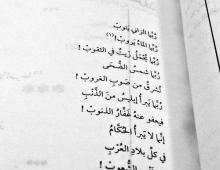 رُبَّما الزاني يَتوبْ
رُبَّما الماءُ يَروبْ !(١)
رُبَّما يُحمَلُ زَيتٌ في الثقوبْ !
رُبَّما شمسُ الضُّحى
تُشرقُ من صَوبِ الغروبْ !
رُبَّما يَبرأُ إبليسُ من الذَّنْبِ
فيعفو عنهُ غَفّارُ الذنوبْ !
إنَّما لا يَبرأُ الحُكّامُ
في كلِّ بلادِ العُرْبِ